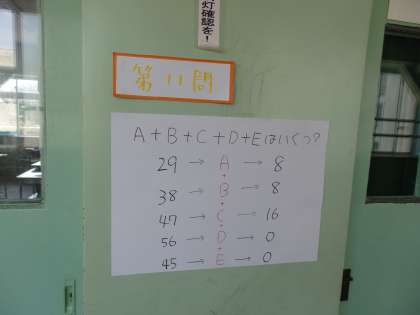 灯確認を!
第11問
A+B+C+D+Eはいくつ?
29 → A → 8
+
38 → B → 8
+
47 → C → 16
+
56 → D → 0
+
45 → E → 0